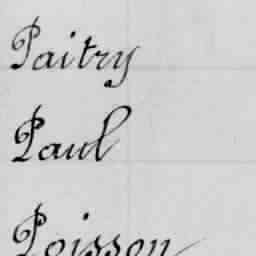 Paitry
Paul
Poisson